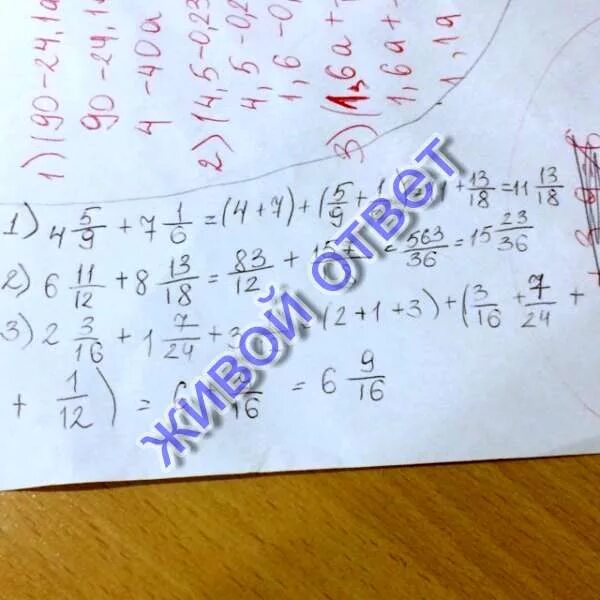 1) (90-24,1a
90-24,1
4-40a
2) (4,5-0,23
4,5-0,2
1,6-0,
3) (1,6a+
1,6a+
1,1a
1) 4 5/9 + 7 1/6 = (4+7) + (5/9 + 1 + 13/18 = 11 13/18
2) 6 11/12 + 8 13/18 = 83/12 + 157 = 563/36 = 15 23/36
3) 2 3/16 + 1 7/24 + 3 = (2+1+3) + (3/16 + 7/24 +
+ 1/12) = 6 /16 = 6 9/16
ЖИВОЙ ОТВЕТ